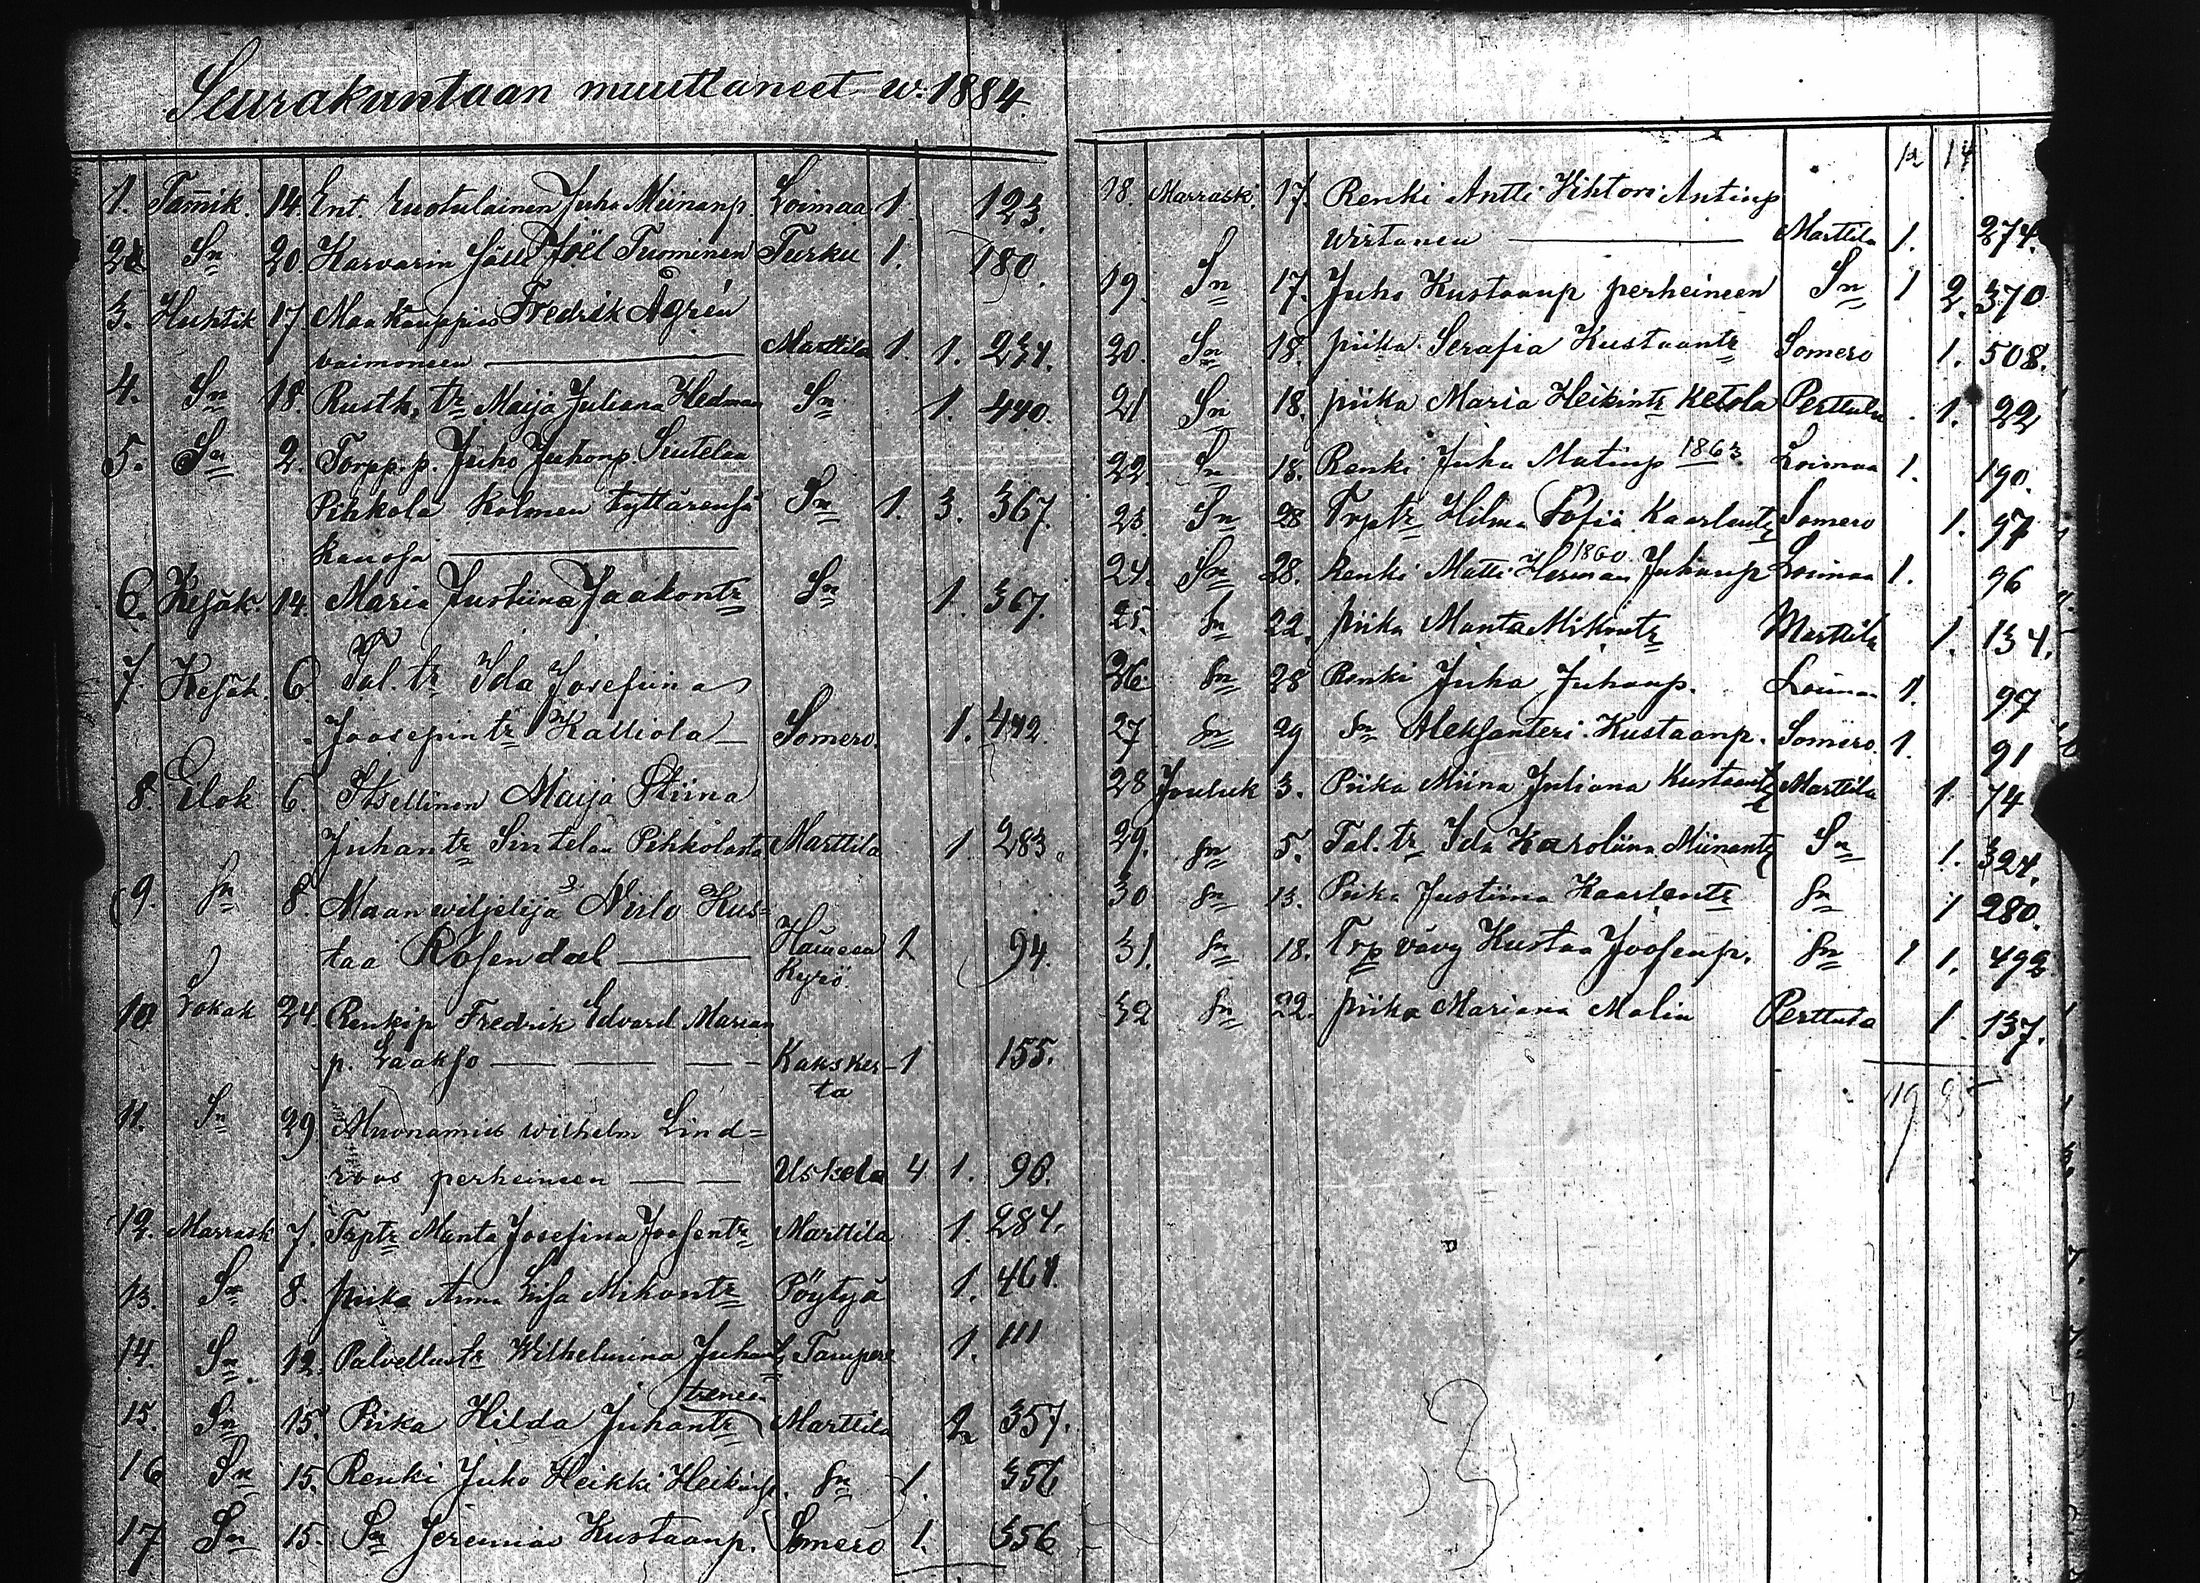 Seurakuntaan muuttaneet w. 1884
1. Tamik. 14. Ent. Juho Miinanp. Loimaa 1. 123.
2. Sn 20 Karvarin Sälli Joël Tuominen Turku 1. 180.
3. Huhtik 17 Maakauppias Fredrik Agrén
vaimoneen Marttila 1. 1. 234.
4. Sn 18. Rusth. tr Maija Juliana Hedman Sn 1. 440.
5. Sn 2. Torpp. p. Juho Juhonp. Sintelan
Pihkola Kolmen tyttärensä Sn 1. 3. 367.
kanssa
6. Kesäk. 14. Maria Justiina Jaakontr Sn 1. 367.
7. Kesäk. 6 Tal. tr Ida Josefiina
Joosepintr Kalliola Somero. 1. 442.
8. Elok 6 Itsellinen Maija Stiina
Juhantr Sintelan Pihkolasta Marttila 1. 283.
9. Sn 8. Maanwiljelijä Niilo Kus=
taa Rosendal Hämeen 1 94.
Kyrö.
10 Lokak 24. Renkip Fredrik Edvard Marian
p. Laakso Kakskerta 1 155.
11. Sn 29 Muonamies Wilhelm Lind=
roos perheineen Uskela 4 1. 98.
12. Marrask 7. Trptr Manta Josefina Joosentr Marttila 1. 284.
13. Sn 8. piika Anna Liisa Mikontr Pöytyä 1. 461.
14. Sn 12. Palvellustr Wilhelmina Juhantr Tampere 1. 111
15. Sn 15. Piika Hilda Juhantr Marttila 2 357.
16 Sn 15. Renki Juho Heikki Heikinp. Sn 1. 356
17 Sn 15. Sn Jeremias Kustaanp. Somero 1. 356
12 14
18. Marrask. 17. Renki Antti Vihtori Antinp
Wirtanen Marttila 1. 274.
19. Sn 17. Juho Kustaanp perheineen Sn 1 2. 370
20. Sn 18. piika Serafia Kustaantr Somero 1. 508.
21 Sn 18. piika Maria Heikintr Ketola Perttula 1. 22
22 Sn 18. Renki Juha Matinp 1863 Loimaa 1. 190.
23 Sn 28 Trptr Hilma Sofia Kaarlentr Somero 1. 97
24. Sn 28. Renki Matti Herman 1860 Juhanp Loimaa 1. 96
25. Sn 22. piika Manta Mikontr Marttila 1. 134.
26. Sn 28 Renki Juha Juhanp. Loimaa 1. 97
27 Sn 29 Sn Aleksanteri Kustaanp. Somero. 1. 91
28 Jouluk 3. Piika Miina Juliana Kustaantr Marttila 1. 74
29. Sn 5. Tal. tr Ida Karoliina Miinantr Sn 1. 324.
30 Sn 13. Piika Justiina Kaarlentr Sn 1 280.
31. Sn 18. Trp vävy Kustaa Joosenp. Sn 1 1. 492
32 Sn 22. piika Mariana Malin Perttula 1. 137.
19 25